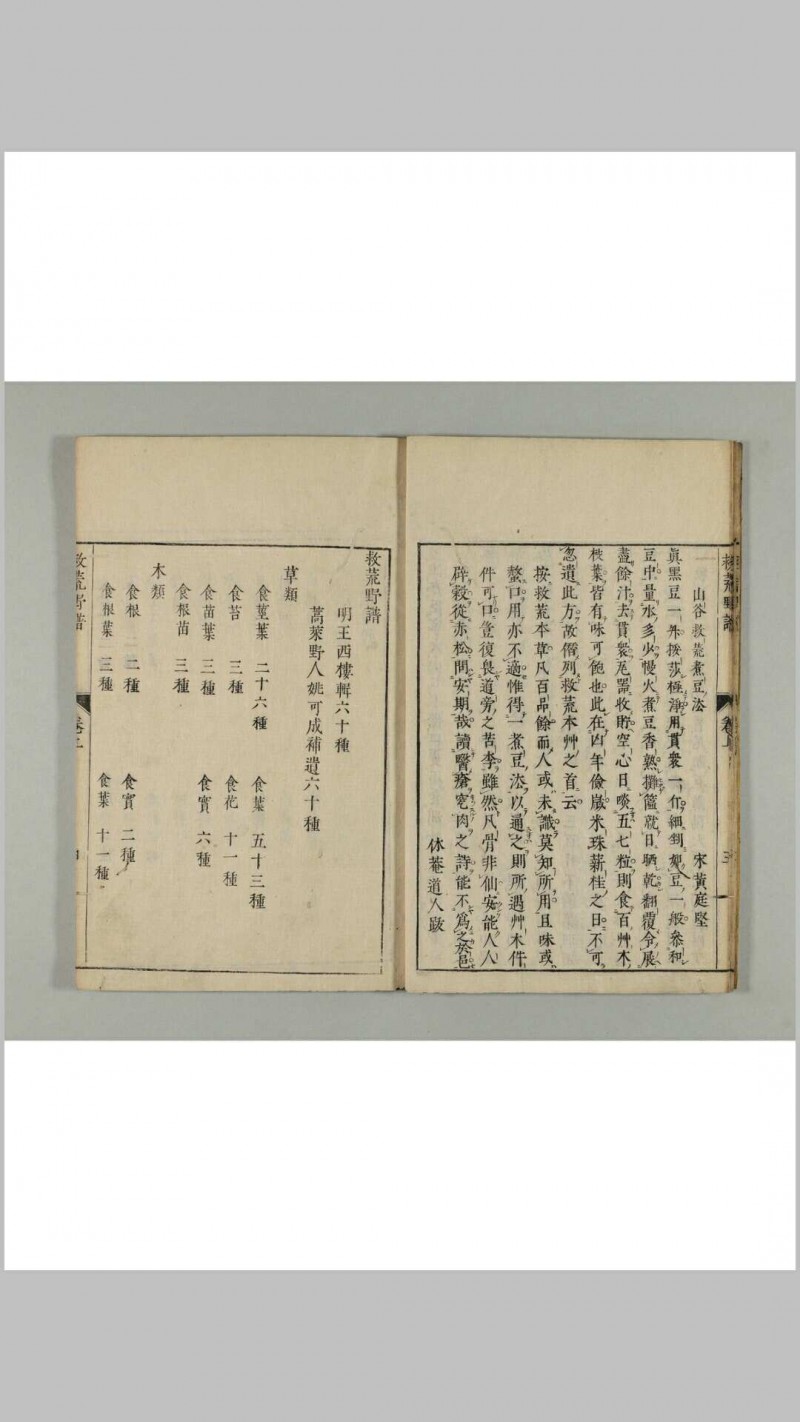 山谷救荒煮豆法　宋黃庭堅
眞黑豆一升挼莎極淨用貫衆一斤細剉如豆一般參和
豆中量水多少慢火煮豆香熟攤簏就日晒乾翻覆令展
盡餘汁去貫衆瓦器收貯空心日啖五七粒則食百艸木
枝葉皆有味可飽也此在凶年儉歲米珠薪桂之日不可
忽遺此方故僭列救荒本艸之首云
按救荒本草凡百品餘而人或未識莫知所用且味或
螫口用亦不適惟得一煮豆法以通之則所遇艸木件
件可口豈復畏道旁之苦李雖然凡骨非仙安能人人
辟穀從赤松問安期哉讀醫瘡宛肉之詩能不爲之於邑
休菴道人跋
救荒野譜
明王西樓輯六十種
蒿萊野人姚可成補遺六十種
草類
食莖葉　二十六種　食葉　五十三種
食苔　三種　食花　十一種
食苗葉　三種　食實　六種
食根苗　三種
木類
食根　二種　食實　二種
食根葉　三種　食葉　十一種
救荒野譜　卷上